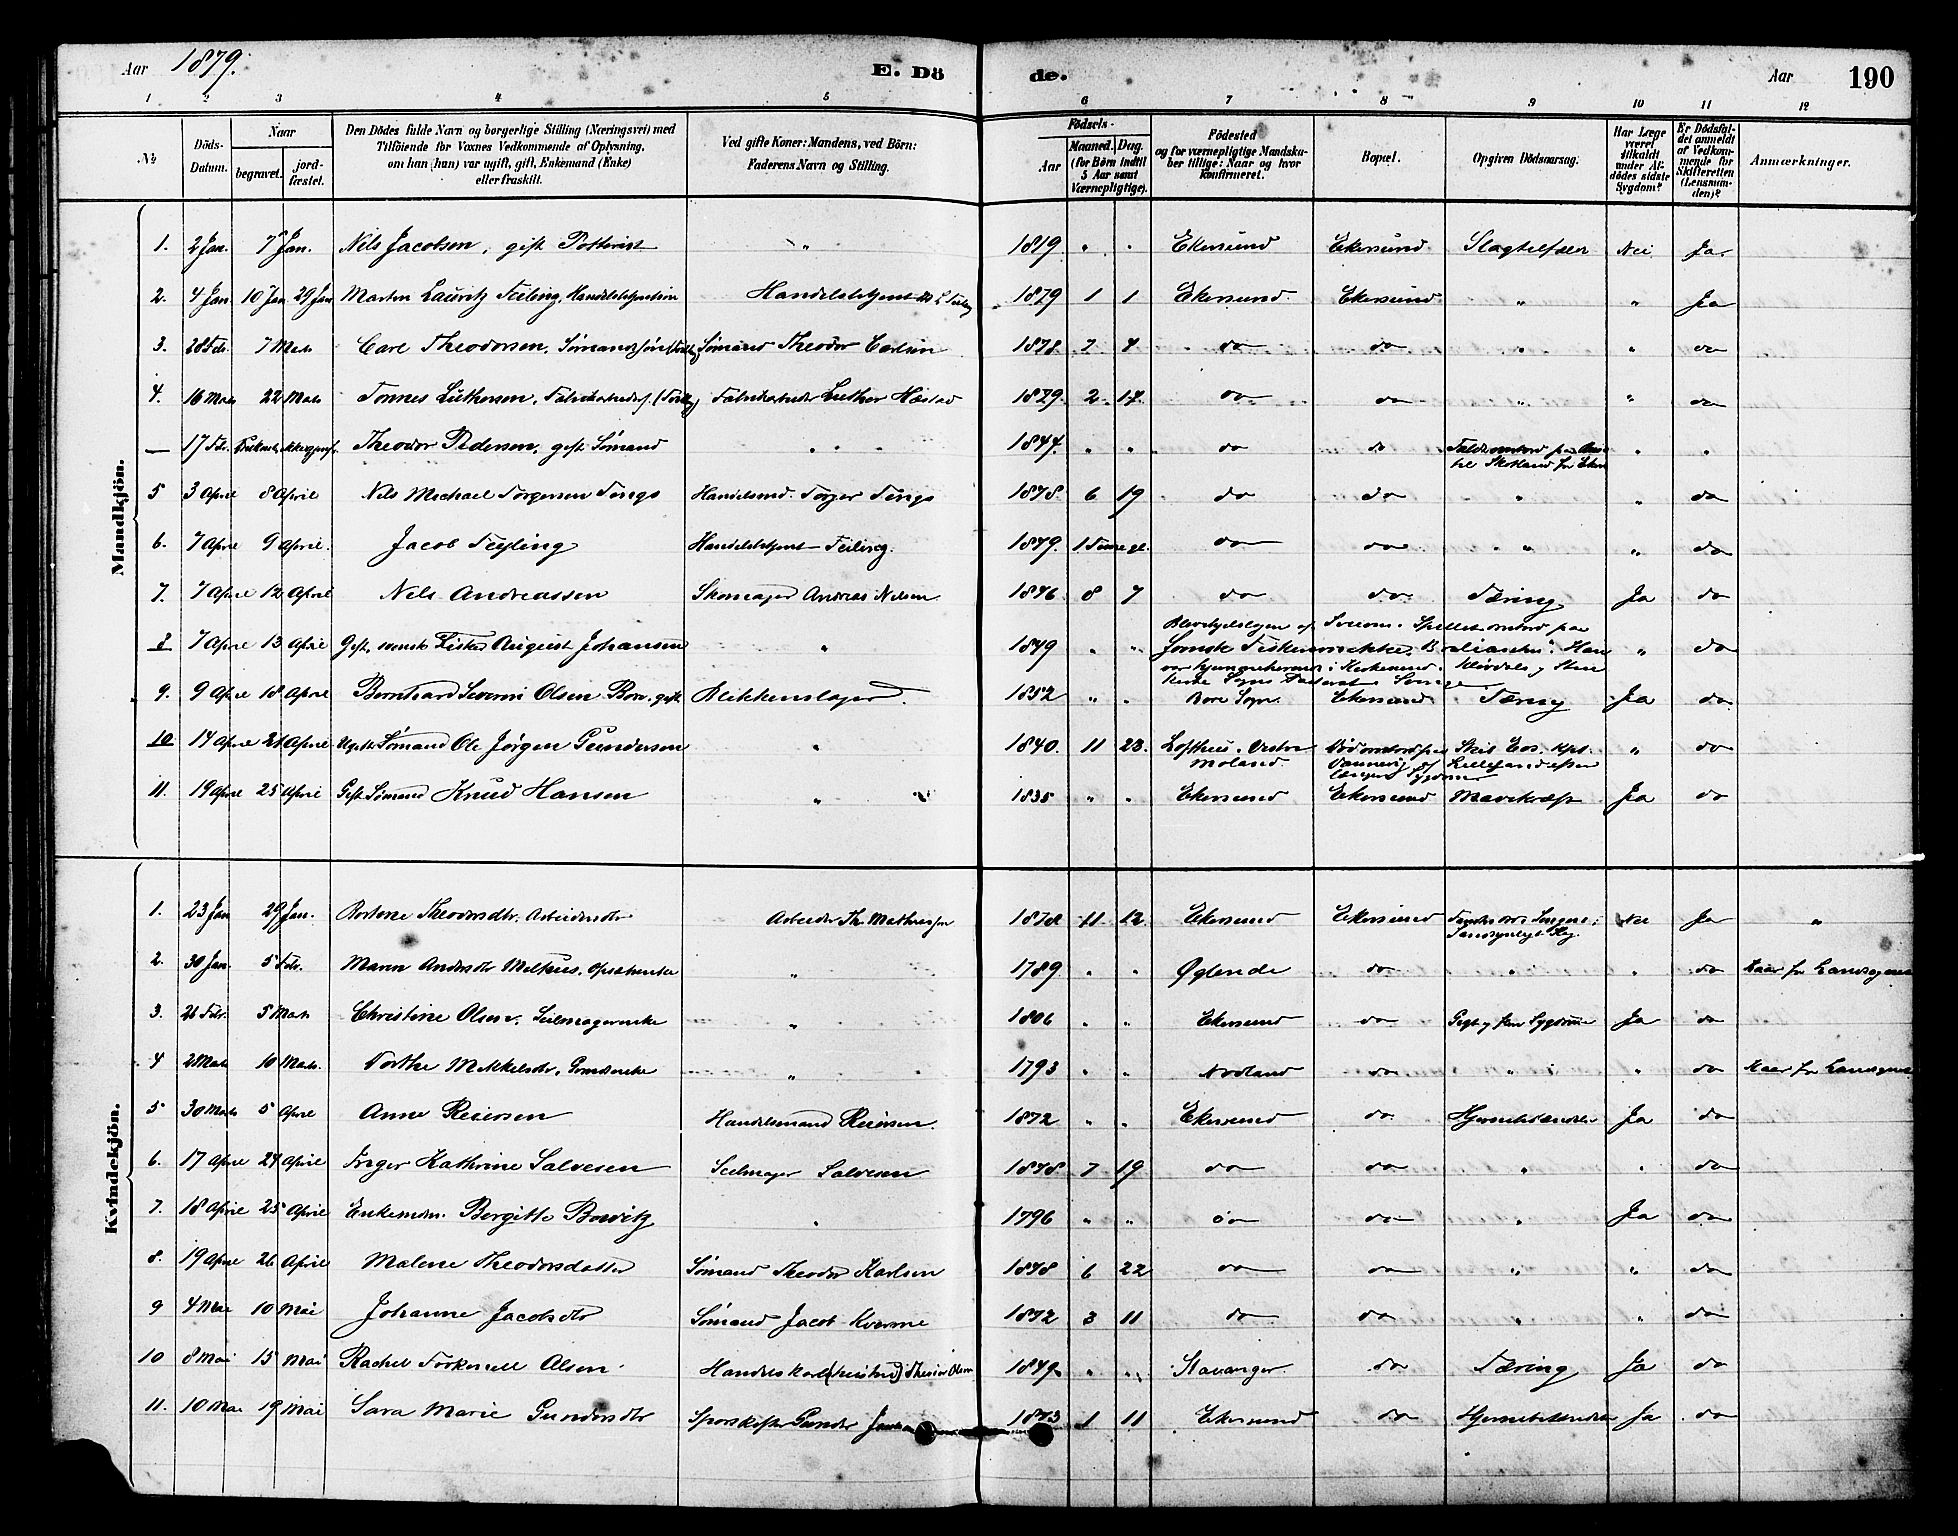 Aar 1879.
E. Dö de.
Aar 190
1 2 3 4 5 6 7 8 9 10 11 12
№
Döds-Datum.
Naar
begravet.
jord-fæstet.
Den Dödes fulde Navn og borgerlige Stilling (Næringsvei) med
Tilföiende for Voxnes Vedkommende af Oplysning,
om han (hun) var ugift, gift, Enkemand (Enke)
eller fraskilt.
Ved gifte Koner: Mandens, ved Börn:
Faderens Navn og Stilling.
Födsels-
Aar
Maaned. Dag.
(for Börn indtil
5 Aar samt
Værnepligtige).
Födested
og for værnepligtige Mandska-
ber tillige: Naar og hvor
konfirmeret.
Bopæl.
Opgiven Dödsaarsag.
Har Læge
været
tilkaldt
under Af-
dödes sidste
Sygdom?
Er Dödsfal-
det anmeldt
af Vedkom-
mende for
Skifteretten
(Lensman-
den)?
Anmærkninger.
Mandkjön.
1. 2 Jan. 7 Jan. Nils Jacobsen, gift " 1819. " " Ekersund Ekersund Slagtilfælde Nei Ja
2. 4 Jan. 10 Jan 29 Jan Martin Lauritz Feiling, Handelsbetjent 1879 1 1 Ekersund Ekersund " " Ja
3. 28 Feb. 7 Marts Carl Theodorsen, Sømandssøn Sømand Theodor Carlsen 1878 7 4 do do " " do
4. 16 Marts 22 Marts Tønnes Luthersen, Fabrikarbeider Luther Hæstad 1879. 2 17 do do " " do
— 17 Feb. Theodor Pedersen, gift Sømand " 1844. " " do do til Skotland fra " "
5 3 April 8 April Nils Michael Torgersen Tengs Handelsmd. Torger Tengs 1878. 6 19 do do " " do
6. 7 April 9 April. Jacob Feyling Handelsbetjent Feiling. 1879. 1 Time gl. do do " " do
7. 7 April 12 April Nils Andreassen Skomager Andreas Nilsen 1876 8 7 do do Tæring Ja do
8 7 April 13 April Gift, svensk Fisker August Johansen " 1849 " " " do
9. 9 April 18 April Bernhard Severin Olsen Bore, gift Blikkenslager. 1852 " " Bore Sogn. Ekersund Tæring Ja do
10 14 April 21 April Ugift Sømand Ole Jørgen Gundersen " 1840. 11 23. Lofthus, Vestre Moland. " do
11. 19 April 25 April Gift Sømand Knud Hansen " 1835 " " Ekersund Ekersund Mavekræft Ja do
Kvindekjön.
1. 23 Jan 29 Jan. Theodorsdtr. Arbeidersdtr Arbeider Th. Mathiassen 1878 11 12 Ekersund Ekersund Nei Ja "
2. 30 Jan. 5 Feb. Maren Andersdtr " 1789 " " Øglende do " " do
3. 26 Feb. 5 Marts Christine Olsen, Seilmagerenke " 1806 " " Ekersund do Gigt Ja do
4 2 Marts 10 Marts. Dorthe Mikkelsdtr. " 1793 " " do " " do
5 30 Marts 5 April Anne Reiersen Handelsmand Reiersen. 1872 " " Ekersund do Hjernebetændelse Ja do
6. 17 April 24 April Inger Kathrine Salvesen Seilmager Salvesen 1878 7 19 do do " " do
7. 18 April 25 April Bergitte " 1796 " " do do " Ja do
8. 19 April 26 April Malene Theodorsdatter Sømand Theodor Karlsen 1878 6 22 do do " " do
9 4 Mai 10 Mai Johanne Jacobsdtr Sømand Jacob 1872 3 11 do do " " do
10 8 Mai 15 Mai Rachel Olsen 1849. " " Stavanger do Tæring Ja do
11. 10 Mai 19 Mai Sara Marie Gundersdtr 1873 1 11 Ekersund do Hjernebetændelse Ja do